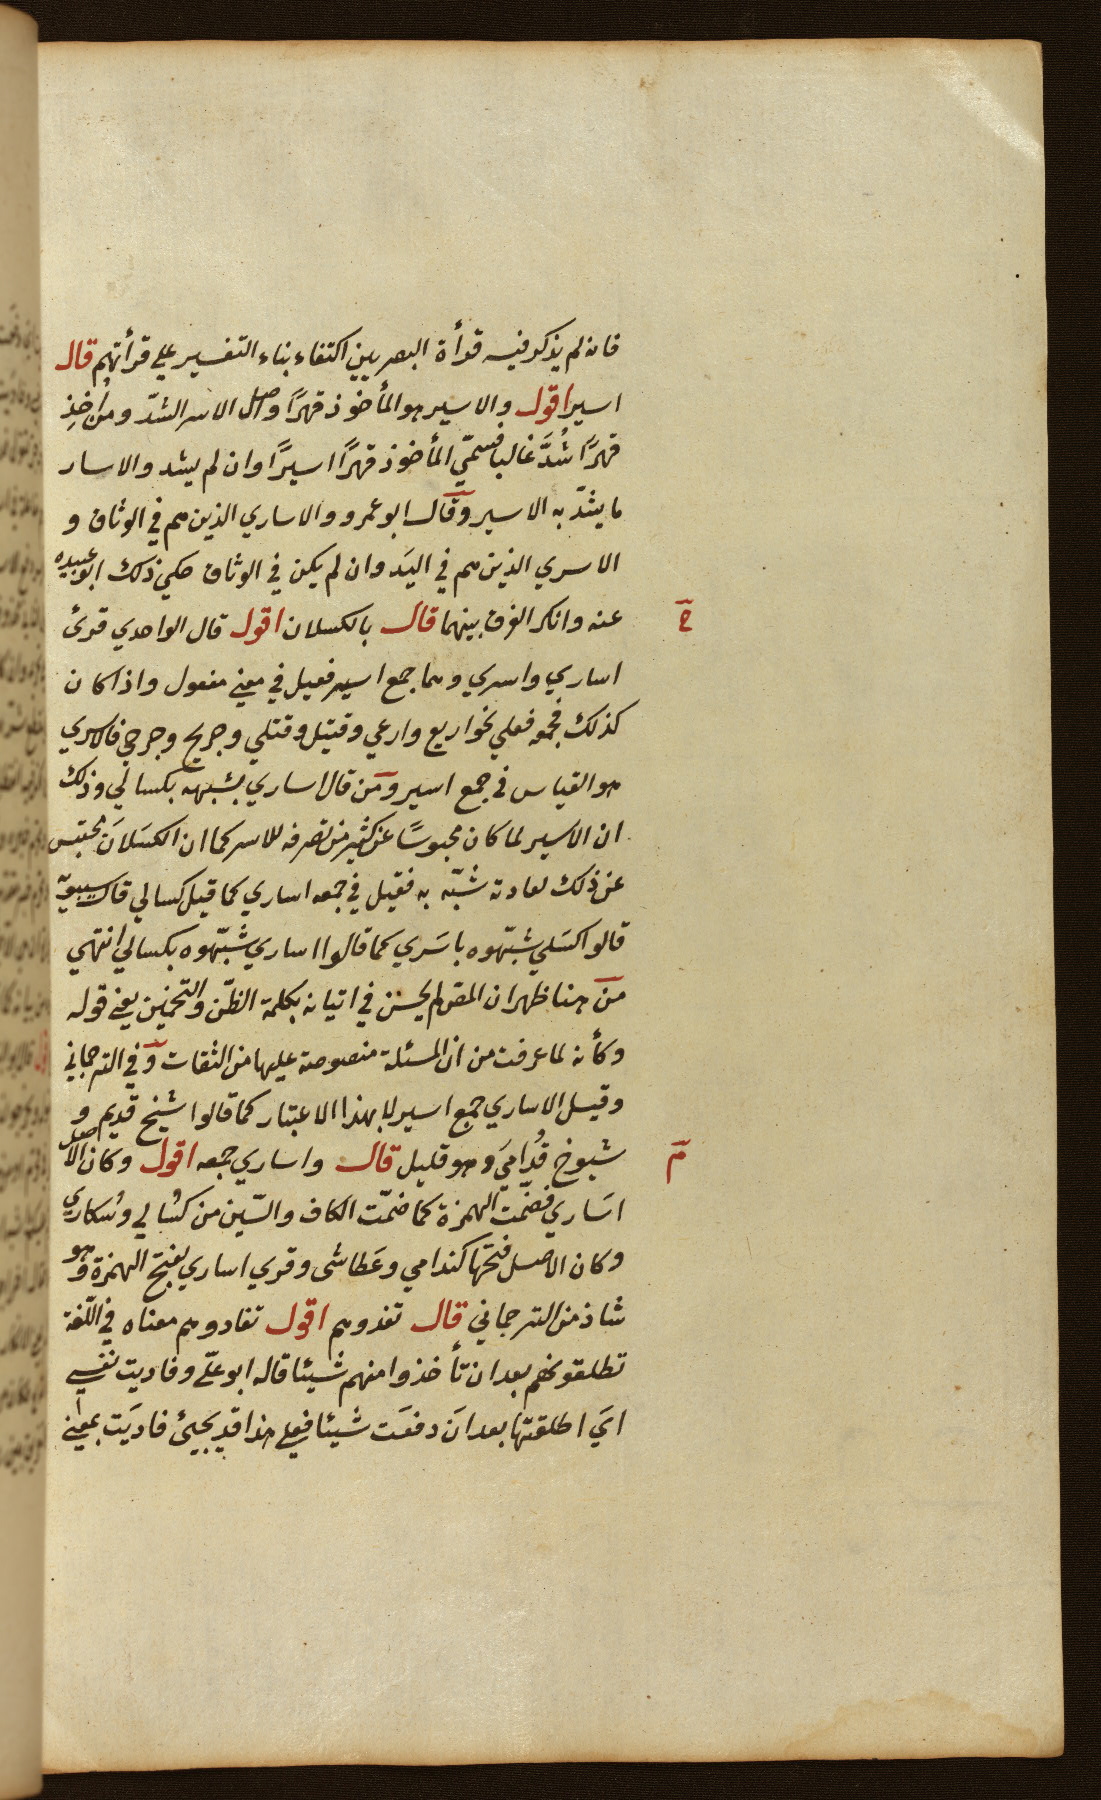 فان لم يذكر فيه قرأة البصريين اكتفاء بناء التفسير علي قرأتهم قال
اسير اقول والاسير هو المأخوذ قهرًا واصل الاسر الشدّ ومن اُخِذِ
قهرًا شُدَّ غالبا فسمّي المأخوذ قهرًا اسيرًا وان لم يشد والاسار
ما يشدّ به الاسير وقال ابو عمرو والاساري الذين هم في الوثاق و
الاسري الذين هم في اليَد وان لم يكن في الوثاق حكي ذلك ابو عبيده
عنه وانكر الفرق بينهما قال بالكسلان اقول قال الواحدي قرئ
ح
اساري واسري وهما جمع اسير فعيل في معني مفعول واذا كان
كذلك فجمعه فعلي نحو اريع وارعي وقتيل وقتلي وجريح وجرحي فالاسري
هو القياس في جمع اسير ومن قال اساري يشبهه بكسالي وذلك
ان الاسير لما كان محبوسًا عن كثير من تصرفه للاسر كما ان الكسَلانَ محتبس
عن ذلك لعادته شبّه به فقيل في جمعه اساري كما قيل كسالي قال سيبويه
قالوا كسَلي شبّهوه باسَري كما قالوا اساري شبّهوه بكسالي انتهي
من هنا ظهر ان المص لم يحسن في اتيانه بكلمة الظّن والتّخمين يعني قوله
وكأنه لما عرفت من ان المسئلة منصوصة عليها من الثقات وفي الترجماني
وقيل الاساري جمع اسير لا بهذا الاعتبار كما قالوا شيخ قديم و
شيوخ قُدامَي وهو قليل قال واساري جمعه اقول وكان الاصل
م
اسَاري فضمّت الهمزة كما ضمّت الكاف والسّين من كسُالي وسُكاري
وكان الاصل فتحها كندامي وعَطاشى وقري اساري بفتح الهمزة وهو
شاذ من الترجماني قال تفدوهم اقول تفادوهم معناه في اللّغة
تطلقونهم بعد ان تأخذوا منهم شيئا قاله ابو علّي وفاديت نفسي
ايَ اطلقتها بعد انَ دفعَت شيئا فعلي هذا قد يجيئ فاديَت بمعني